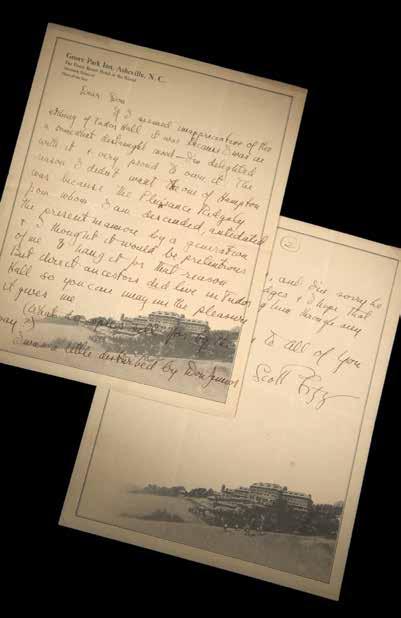 Grove Park Inn, Asheville, N. C.
The Finest Resort Hotel in the World
Dear Don
If I seemed unappreciative of the
etching of Tudor Hall, it was because I was in
a somewhat distraught mood—I'm delighted
with it + very proud to own it. The
reason I didn't want the one of Hampton
was because the Pleasance Ridgely
from whom I am descended, antedated
the present manor by a generation
+ I thought it would be pretentious
of me to hang it for that reason
But direct ancestors did live in Tudor
Hall so you can imagine the pleasure
it gives me
(What
way?)
I was a little disturbed by Don Junior
2
, and I'm sorry he
+ I hope that
time
any
to all of you
Scott Fitzg